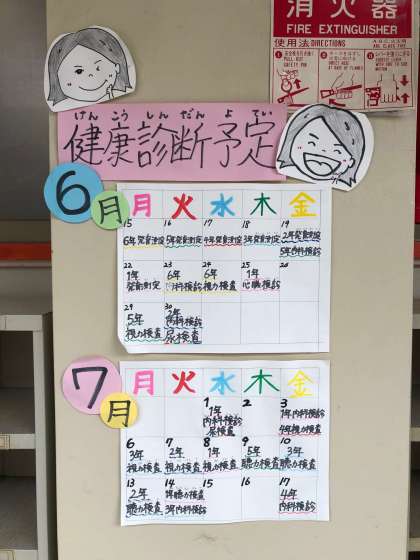 消火器
FIRE EXTINGUISHER
使用法 DIRECTIONS
けん こう しん だん よ てい
健康診断予定
6月
月 火 水 木 金
15 16 17 18 19
6年発育測定 5年発育測定 4年発育測定 3年発育測定 2年発育測定
5年内科検診
22 23 24 25 26
1年 6年 6年 1年
発育測定 内科検診 視力検査 心臓検診
29 30
5年 2年
視力検査 内科検診
尿検査
7月
月 火 水 木 金
1 2 3
1年 1年内科検診
内科検診 4年視力検査
尿検査
6 7 8 9 10
3年 2年 1年 5年 3年
視力検査 視力検査 視力検査 聴力検査 聴力検査
13 14 15 16 17
2年 1年聴力検査 4年
聴力検査 3年内科検診 内科検診